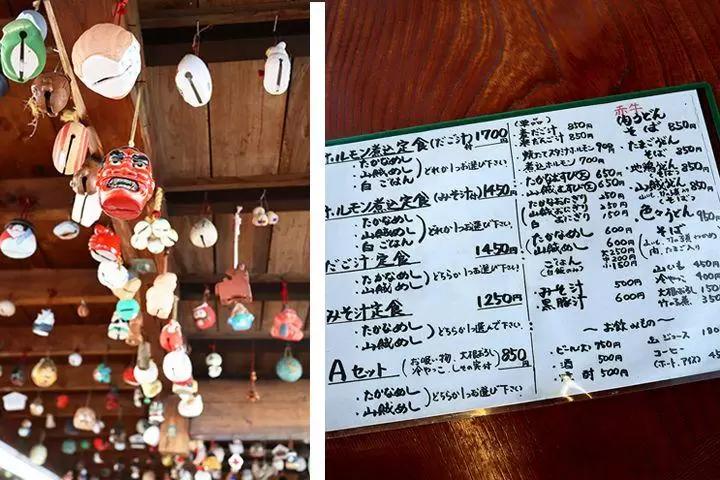 ホルモン煮込定食(だご汁付)1700円
・たかなめし
・山賊めし
・白ごはん
どれか1つお選び下さい。
ホルモン煮込定食(みそ汁付)1450円
・たかなめし
・山賊めし
・白ごはん
どれか1つお選び下さい。
だご汁定食 1450円
・たかなめし
・山賊めし
どちらか1つお選び下さい。
みそ汁定食 1250円
・たかなめし
・山賊めし
どちらか1つ選んで下さい。
Aセット(お吸い物、大根おろし 冷やっこ、しその実付)850円
・たかなめし
・山賊めし
どちらか1つお選び下さい
(単品)
だご汁 850円
煮込ホルモン 700円
たかなおにぎり
山賊おにぎり
たかなめし 600円
山賊めし 600円
ごはん
大250円
中200円
小150円
みそ汁 500円
黒豚汁 600円
赤牛
肉うどん
そば 850円
たまごうどん
そば
地鶏うどん
山賊うどん
そば 850円
色々うどん
そば
山いも 450円
冷やっこ 400円
大根おろし
竹の子煮
〜お飲みもの〜
・ビール 750円
・酒 500円
・焼酎 500円
ジュース
コーヒー
(ホット、アイス)